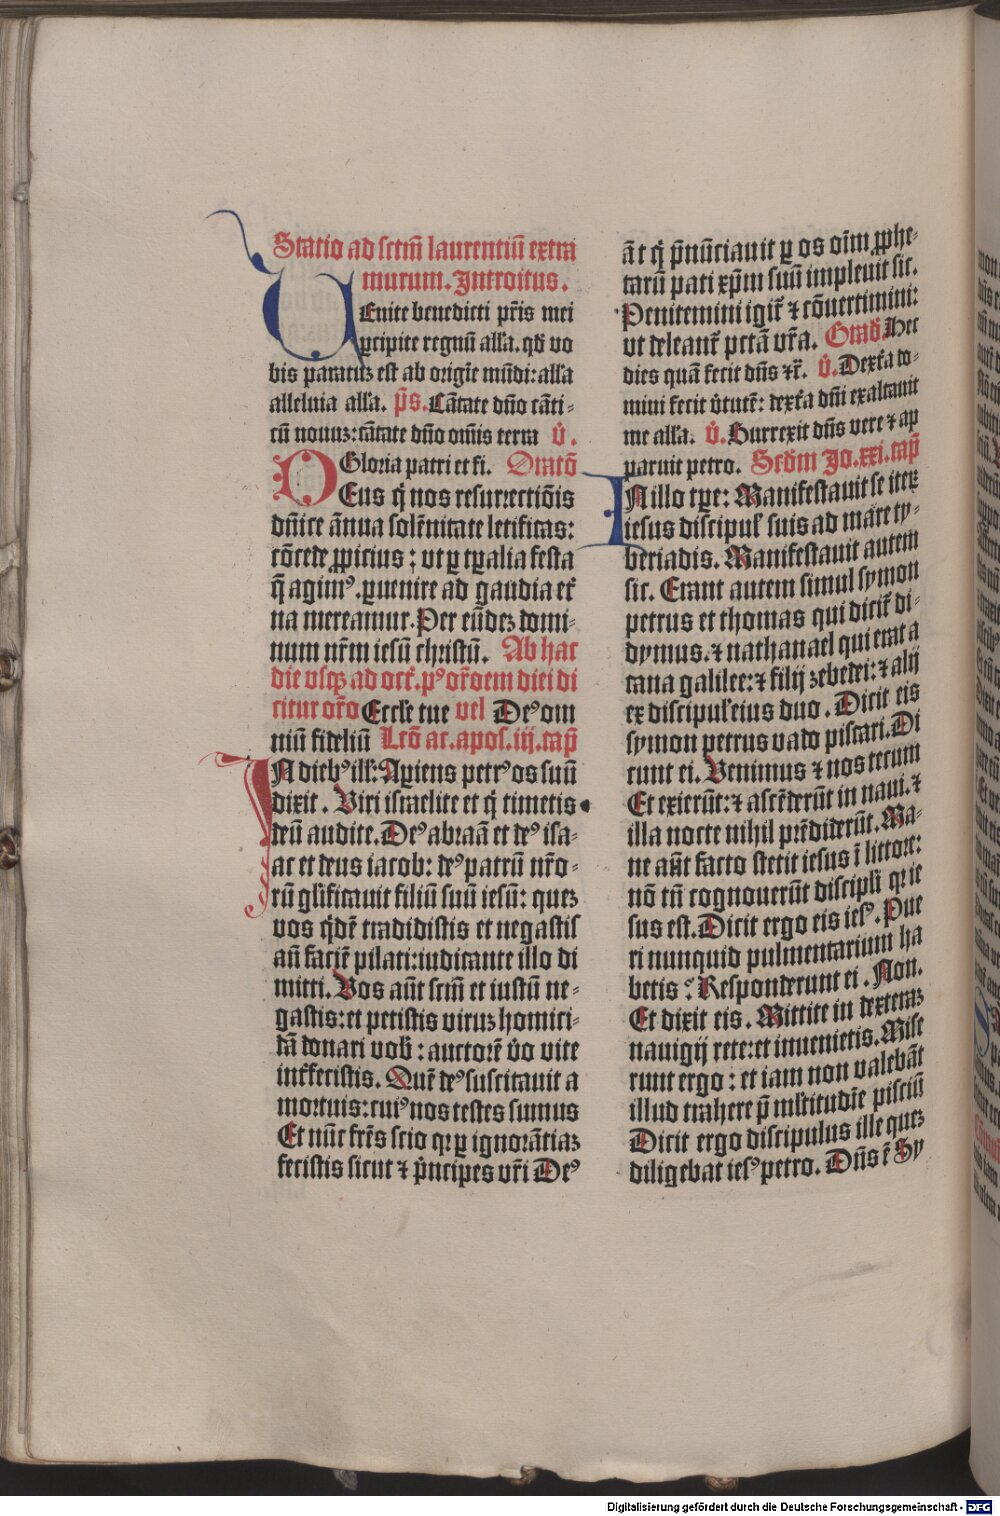 Statio ad sctm̄ laurentiū extra
murum. Introitus.
VEnite benedicti pr̄is mei
ꝑcipite regnū alľa. qđ vo
bis paratuꝫ est ab origīe mūdi: alľa
alleluia alľa. p̄s. Cātate dn̄o cāti-
cū nouuꝫ: cātate dn̄o om̄is terra v̄.
Gloria patri et fi. Oratō
DEus q̇ nos resurrectiōis
dn̄ice ānua solēnitate letificas:
cōcede ꝓpicius: vt ꝑ tꝑalia festa
q̄ agimꝰ. ꝑuenire ad gaudia et̄
na mereamur. Per eūdeꝫ domi-
num nr̄m iesū christū. Ab hac
die vsqꝫ ad oct̄. pꝰ or̄oem diei di
citur or̄o Eccľe tue vel Deꝰ om
niū fideliū Lcō ac. apos. iij. cap̄
IN diebꝰ ilľ: Apiens petrꝰ os suū
dixit. Viri israelite et q̇ timetis
deū audite. Deꝰ abraā et deꝰ isa-
ac et deus iacob: deꝰ patrū nr̄o-
rū gľificauit filiū suū iesū: queꝫ
vos q̇dē tradidistis et negastis
an̄ faciē pilati: iudicante illo di
mitti. Vos aūt scm̄ et iustū ne-
gastis: et petistis viruꝫ homici-
dā donari vob̄: auctorē v̇o vite
int̄fecistis. Quē deꝰ suscitauit a
mortuis: cuiꝰ nos testes sumus
Et nūc fr̄es scio qꝛ ꝑ ignorātiaꝫ
fecistis sicut ⁊ ṗncipes vr̄i Deꝰ
āt q̇ p̄nūciauit ꝑ os oīm ꝓphe-
tarū pati xp̄m suū impleuit sic.
Penitemini igit̄ ⁊ cōuertimini:
vt deleant̄ pctā vr̄a. Grad̄ Hec
dies quā fecit dn̄s ⁊r̄. v̄. Dext̄a do-
mini fecit v̇tutē: dext̄a dn̄i exaltauit
me alľa. v̄. Surrexit dn̄s vere ⁊ ap
paruit petro. Scd̄m Jo. xxi. cap̄
IN illo tꝑe: Manifestauit se iteꝝ
iesus discipuľ suis ad mare ty-
beriadis. Manifestauit autem
sic. Erant autem simul symon
petrus et thomas qui dicit̄ di-
dymus. ⁊ nathanael qui erat a
cana galilee: ⁊ filij zebedei: ⁊ alij
ex discipuľ eius duo. Dicit eis
symon petrus vado piscari. Di
cunt ei. Venimus ⁊ nos tecum
Et exierūt: ⁊ ascēderūt in naui. ⁊
illa nocte nihil prēdiderūt. Ma-
ne aūt facto stetit iesus ī littore:
nō tn̄ cognouerūt discipľi qꝛ ie
sus est. Dicit ergo eis iesꝰ. Pue
ri nunquid pulmentarium ha
betis? Responderunt ei. Non.
Et dixit eis. Mittite in dexteraꝫ
nauigij rete: et inuenietis. Mise
runt ergo: et iam non valebāt
illud trahere p̄ mľtitudīe pisciū
Dicit ergo discipulus ille queꝫ
diligebat iesꝰ petro. Dn̄s ē Sy
Digitalisierung gefördert durch die Deutsche Forschungsgemeinschaft - DFG